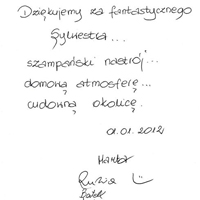 Dziękujemy za fantastycznego
Sylwestra...
szampański nastrój...
domową atmosferę...
cudowną okolicę.
01.01.2012